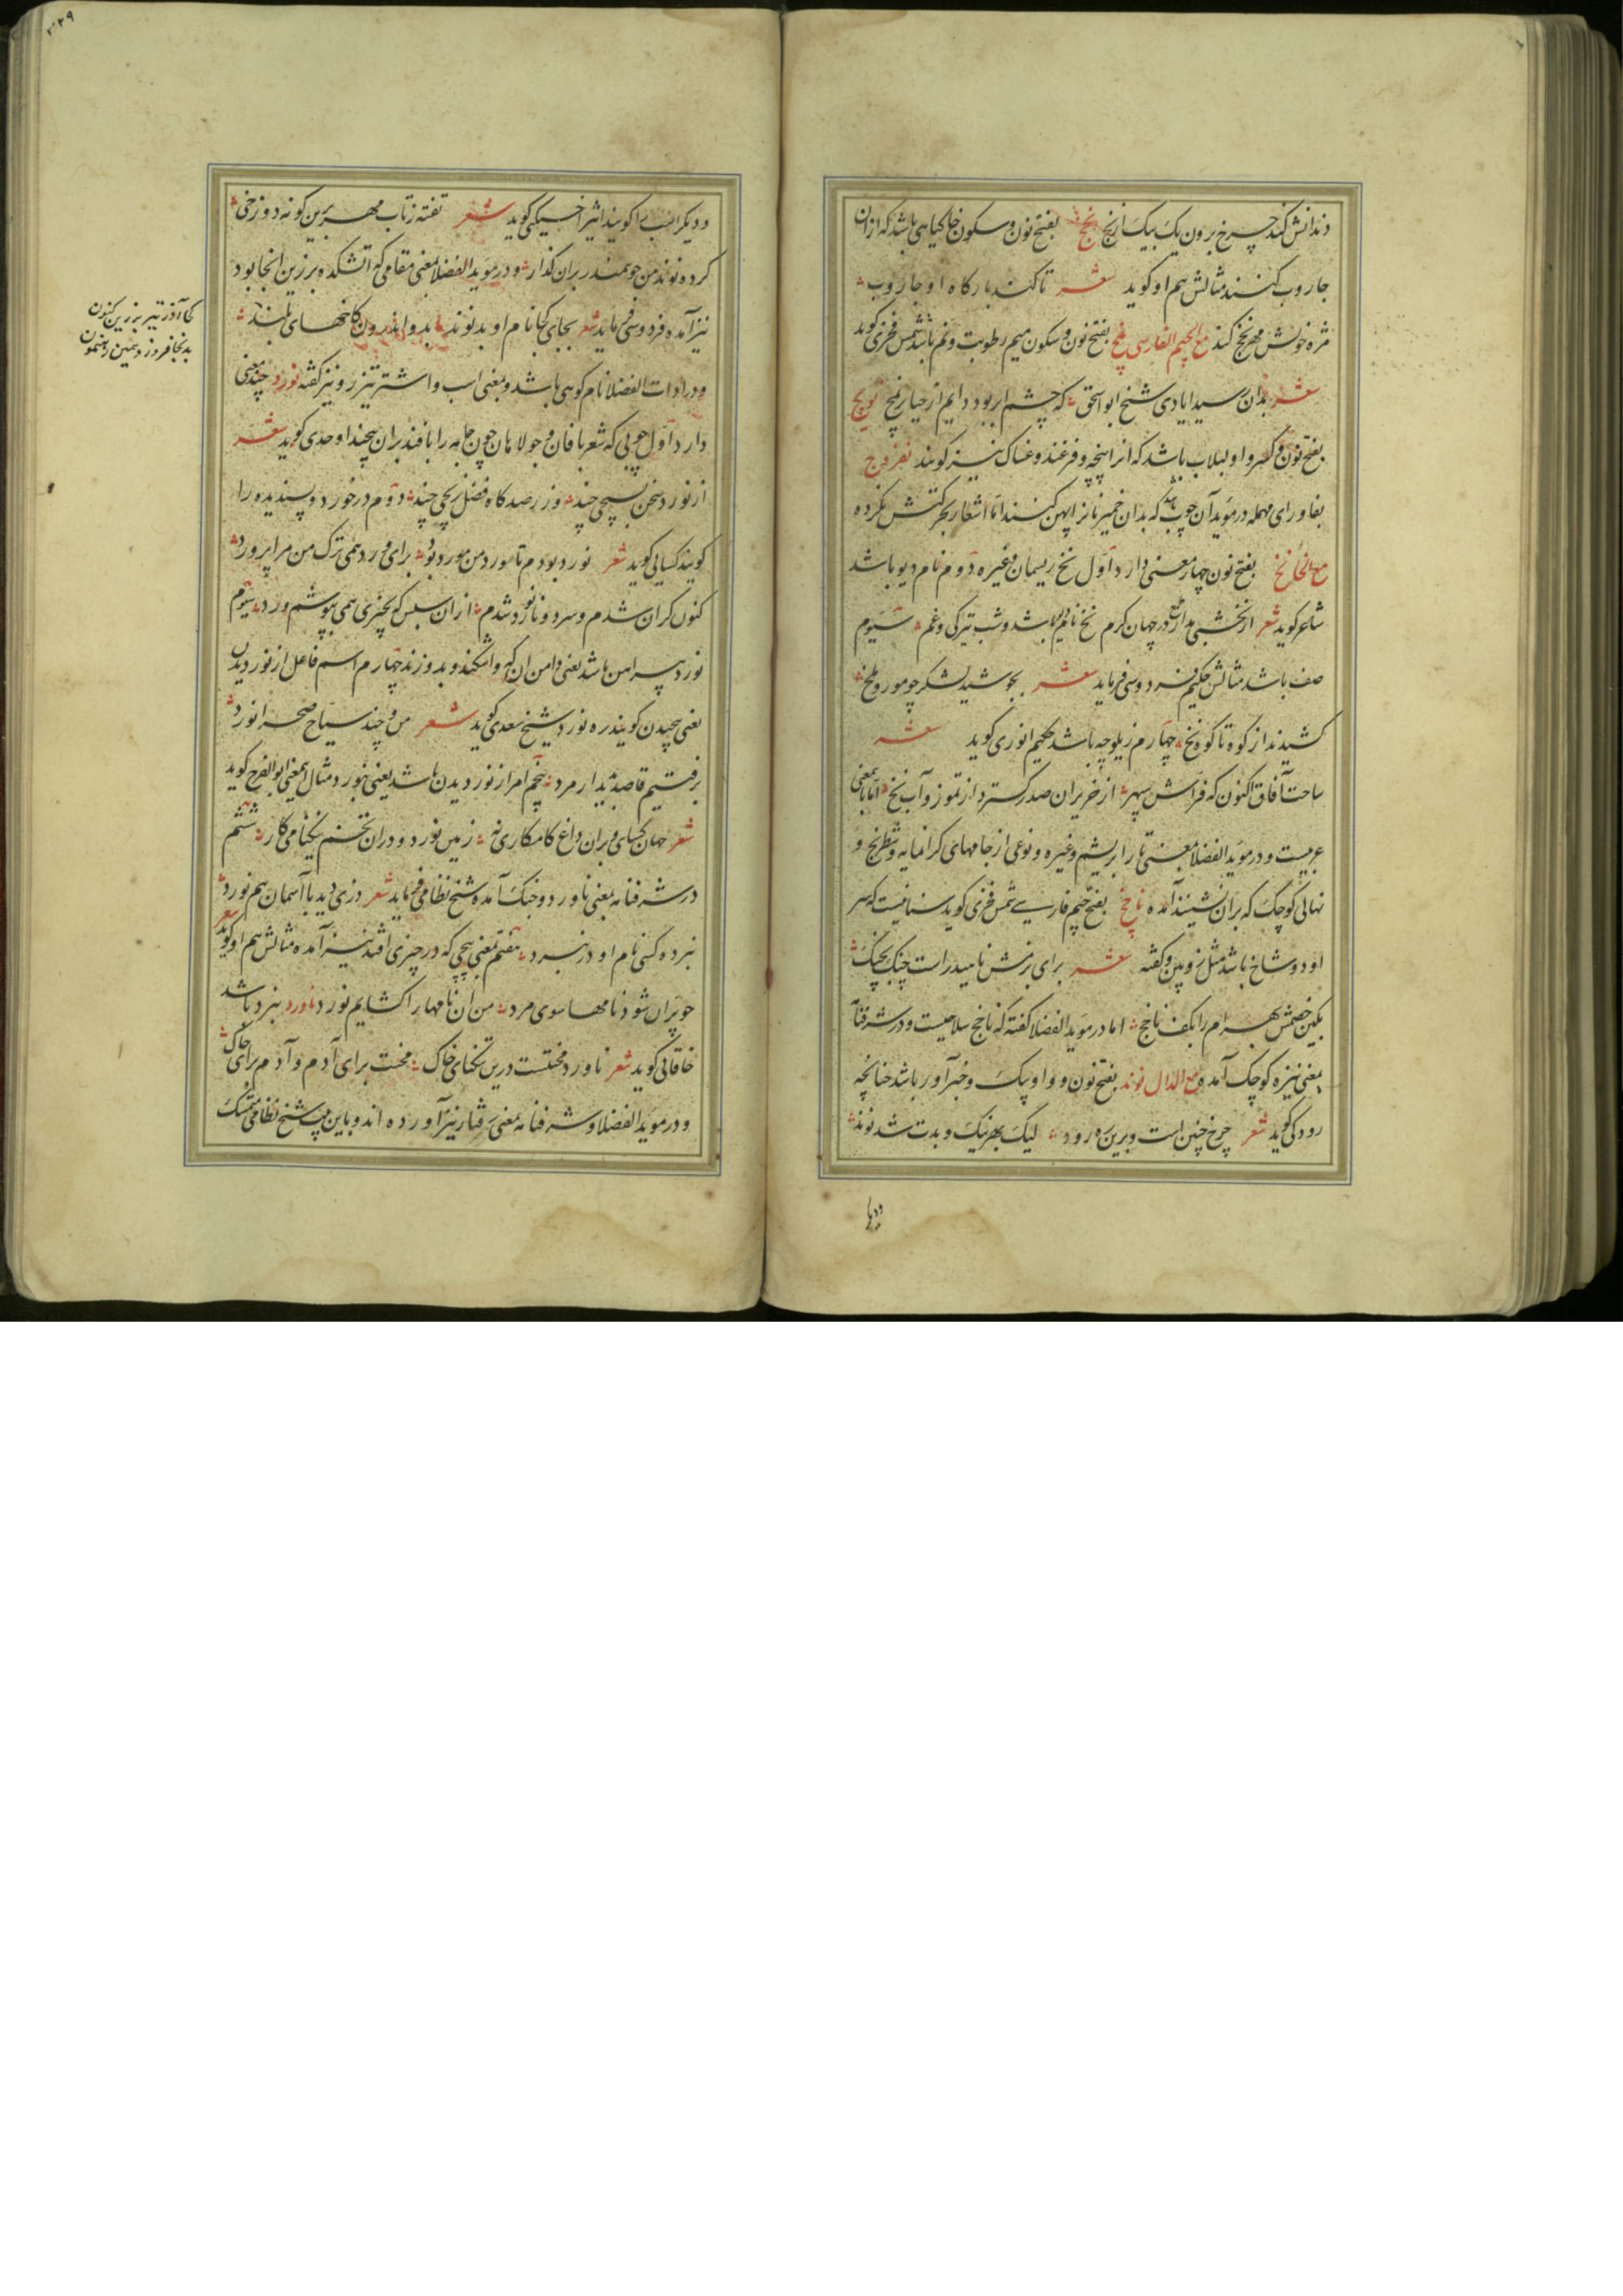 دندانش کند چرخ برون یک بیک از نخج بفتح نون و سکون خا کیاهی باشد که ازان
جاروب کنند مثالش هم او کوید شعر تا کند بارکاه او جاروب
مژه خویش مهر نخج کند مع الجیم الفارسی نمچ بفتح نون و سکون میم رطوبت و نم باشد شمس فخری کوید
شعر بدان رسید ایادی شیخ ابو اسحق که چشم ابر بود دایم از حیا نمچ نویج
بفتح نون و کسر واو لبلاب باشد که انرا پیچه و فرغند و غساک نیز کویند نفروج
بفا و رای مهمله در موید آن چوب که بدان خمیر نانرا پهن کنند اما اشعار بحرکتش نکرده
مع الخا نخ بفتح نون چهار معنی دارد اول نخ ریسمان و غیره دوم نام دیو باشد
شاعر کوید شعر از بخشش در جهان کرم نخ نام باشد و شب تیرکی و غم سیوم
صف باشد مثالش حکیم فردوسی فرماید شعر بجوشید لشکر چو مور و ملخ
کشیدند از کوه تا کوه نخ چهارم زیلوچه باشد حکیم انوری کوید شعر
ساحت آفاق اکنون که فراش سپهر از خزیران صدر کسترد از تموز و آب نخ اما بمعنی
عربیست و در موید الفضلا بمعنی تار ابریشم و غیره و نوعی از جامهای کرانمایه و شطرنج و
نهالی کوچک که بران نشینند آمده ناچخ بفتح جیم فارسی شمس فخری کوید سنانیست که سر
او دو شاخ باشد مثل زوبین و کفته شعر برای رزمش ناهید راست چنک بچنک
بکین خصمش بهرام را بکف ناچخ اما در موید الفضلا کفته که ناچخ سلاحیست و در شرفنامه
بمعنی نیزه کوچک آمده مع الدال نوند بفتح نون و واو پیک و خبر آور باشد چنانچه
رودکی کوید شعر چرخ چنین است و برین ره رود لیک بهر نیک و بدت شد نوند
ودیکر
ودیکر اسب را کویند اثیر اخسیکتی کوید شعر تفته ز تاب مهر برین کونه دوزخی
کرده نوند من چو سمندر بران کذار و در موید الفضلا بمعنی مقامی که آتشکده برزین انجا بود
نیز آمده فردوسی فرماید شعر بجای کجا نام او بد نوند بدو اندرون کاخهای بلند
و در ادات الفضلا نام کوهی باشد و بمعنی اسب و اشتر تیز رو نیز کفته نورد چند معنی
دارد اول چوبی که شعربافان و جولاهان چون جامه را بافند بران پیچند اوحدی کوید شعر
از نورد سخن بسیچی چند وز رصدکاه فضل بچی چند دوم درخورد و پسندیده را
کویند کسایی کوید شعر نورد بودم تا ورد من مورد بود برای ورد همی ترک من مرا پرورد
کنون کران شدم و سرد و نانورد شدم از ان سپس که بخیری همی بپوشم ورد سیوم
نورد پیراهن باشد یعنی دامن ان که واشکنند و بدوزند چهارم اسم فاعل از نوردیدن
یعنی پیچیدن کویند ره نورد شیخ سعدی کوید شعر من و چند سیاح صحرا نورد
برفتیم قاصد بدیدار مرد پنجم امر از نوردیدن باشد یعنی بنورد مثال این معنی ابوالفرج کوید
شعر جهان کشای و بران داغ کامکاری نه زمین نورد و دران تخم نیکنامی کار ششم
در شرفنامه بمعنی ناورد و جنک آمده شیخ نظامی فرماید شعر دزی دید با آسمان هم نورد
نبرده کسی نام او در نبرد هفتم بمعنی پیچی که در چیزی افتد نیز آمده مثالش هم او کوید شعر
چو پران شود نامها سوی مرد من ان نامها را کشایم نورد ناورد نبرد باشد
خاقانی کوید شعر ناورد محنتست درین تنکنای خاک محنت برای آدم و آدم برای خاک
و در موید الفضلا و شرفنامه بمعنی رفتار نیز آورده اند و باین بیت شیخ نظامی متمسک
کجا آذر تیر برزین کنون
بدانجا فروزد همین رهنمون